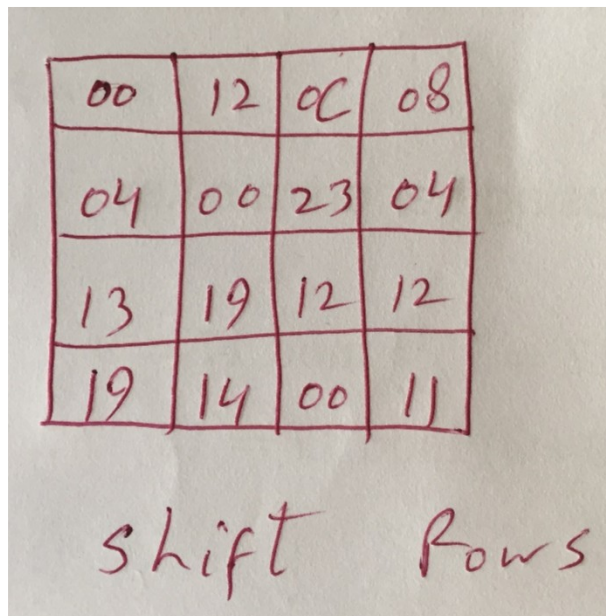 00 12 0C 08
04 00 23 04
13 19 12 12
19 14 00 11
Shift Rows